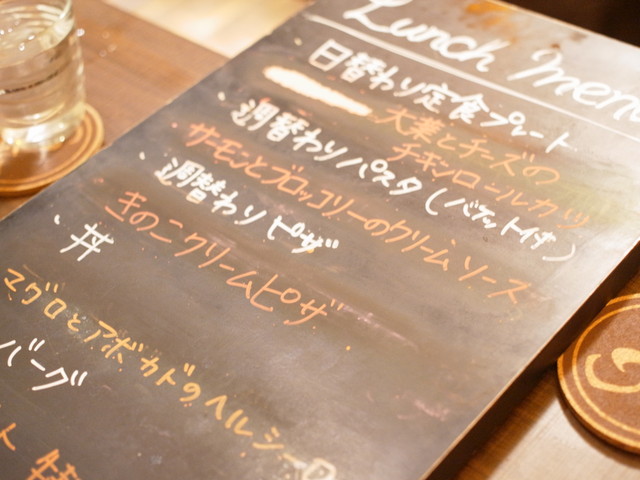 Lunch menu
・日替わり定食プレート
大葉とチーズの
チキンロールカツ
・週替わりパスタ(バケット付)
サーモンとブロッコリーのクリームソース
・週替わりピザ
きのこクリームピザ
・丼
マグロとアボカドのヘルシー
バーグ